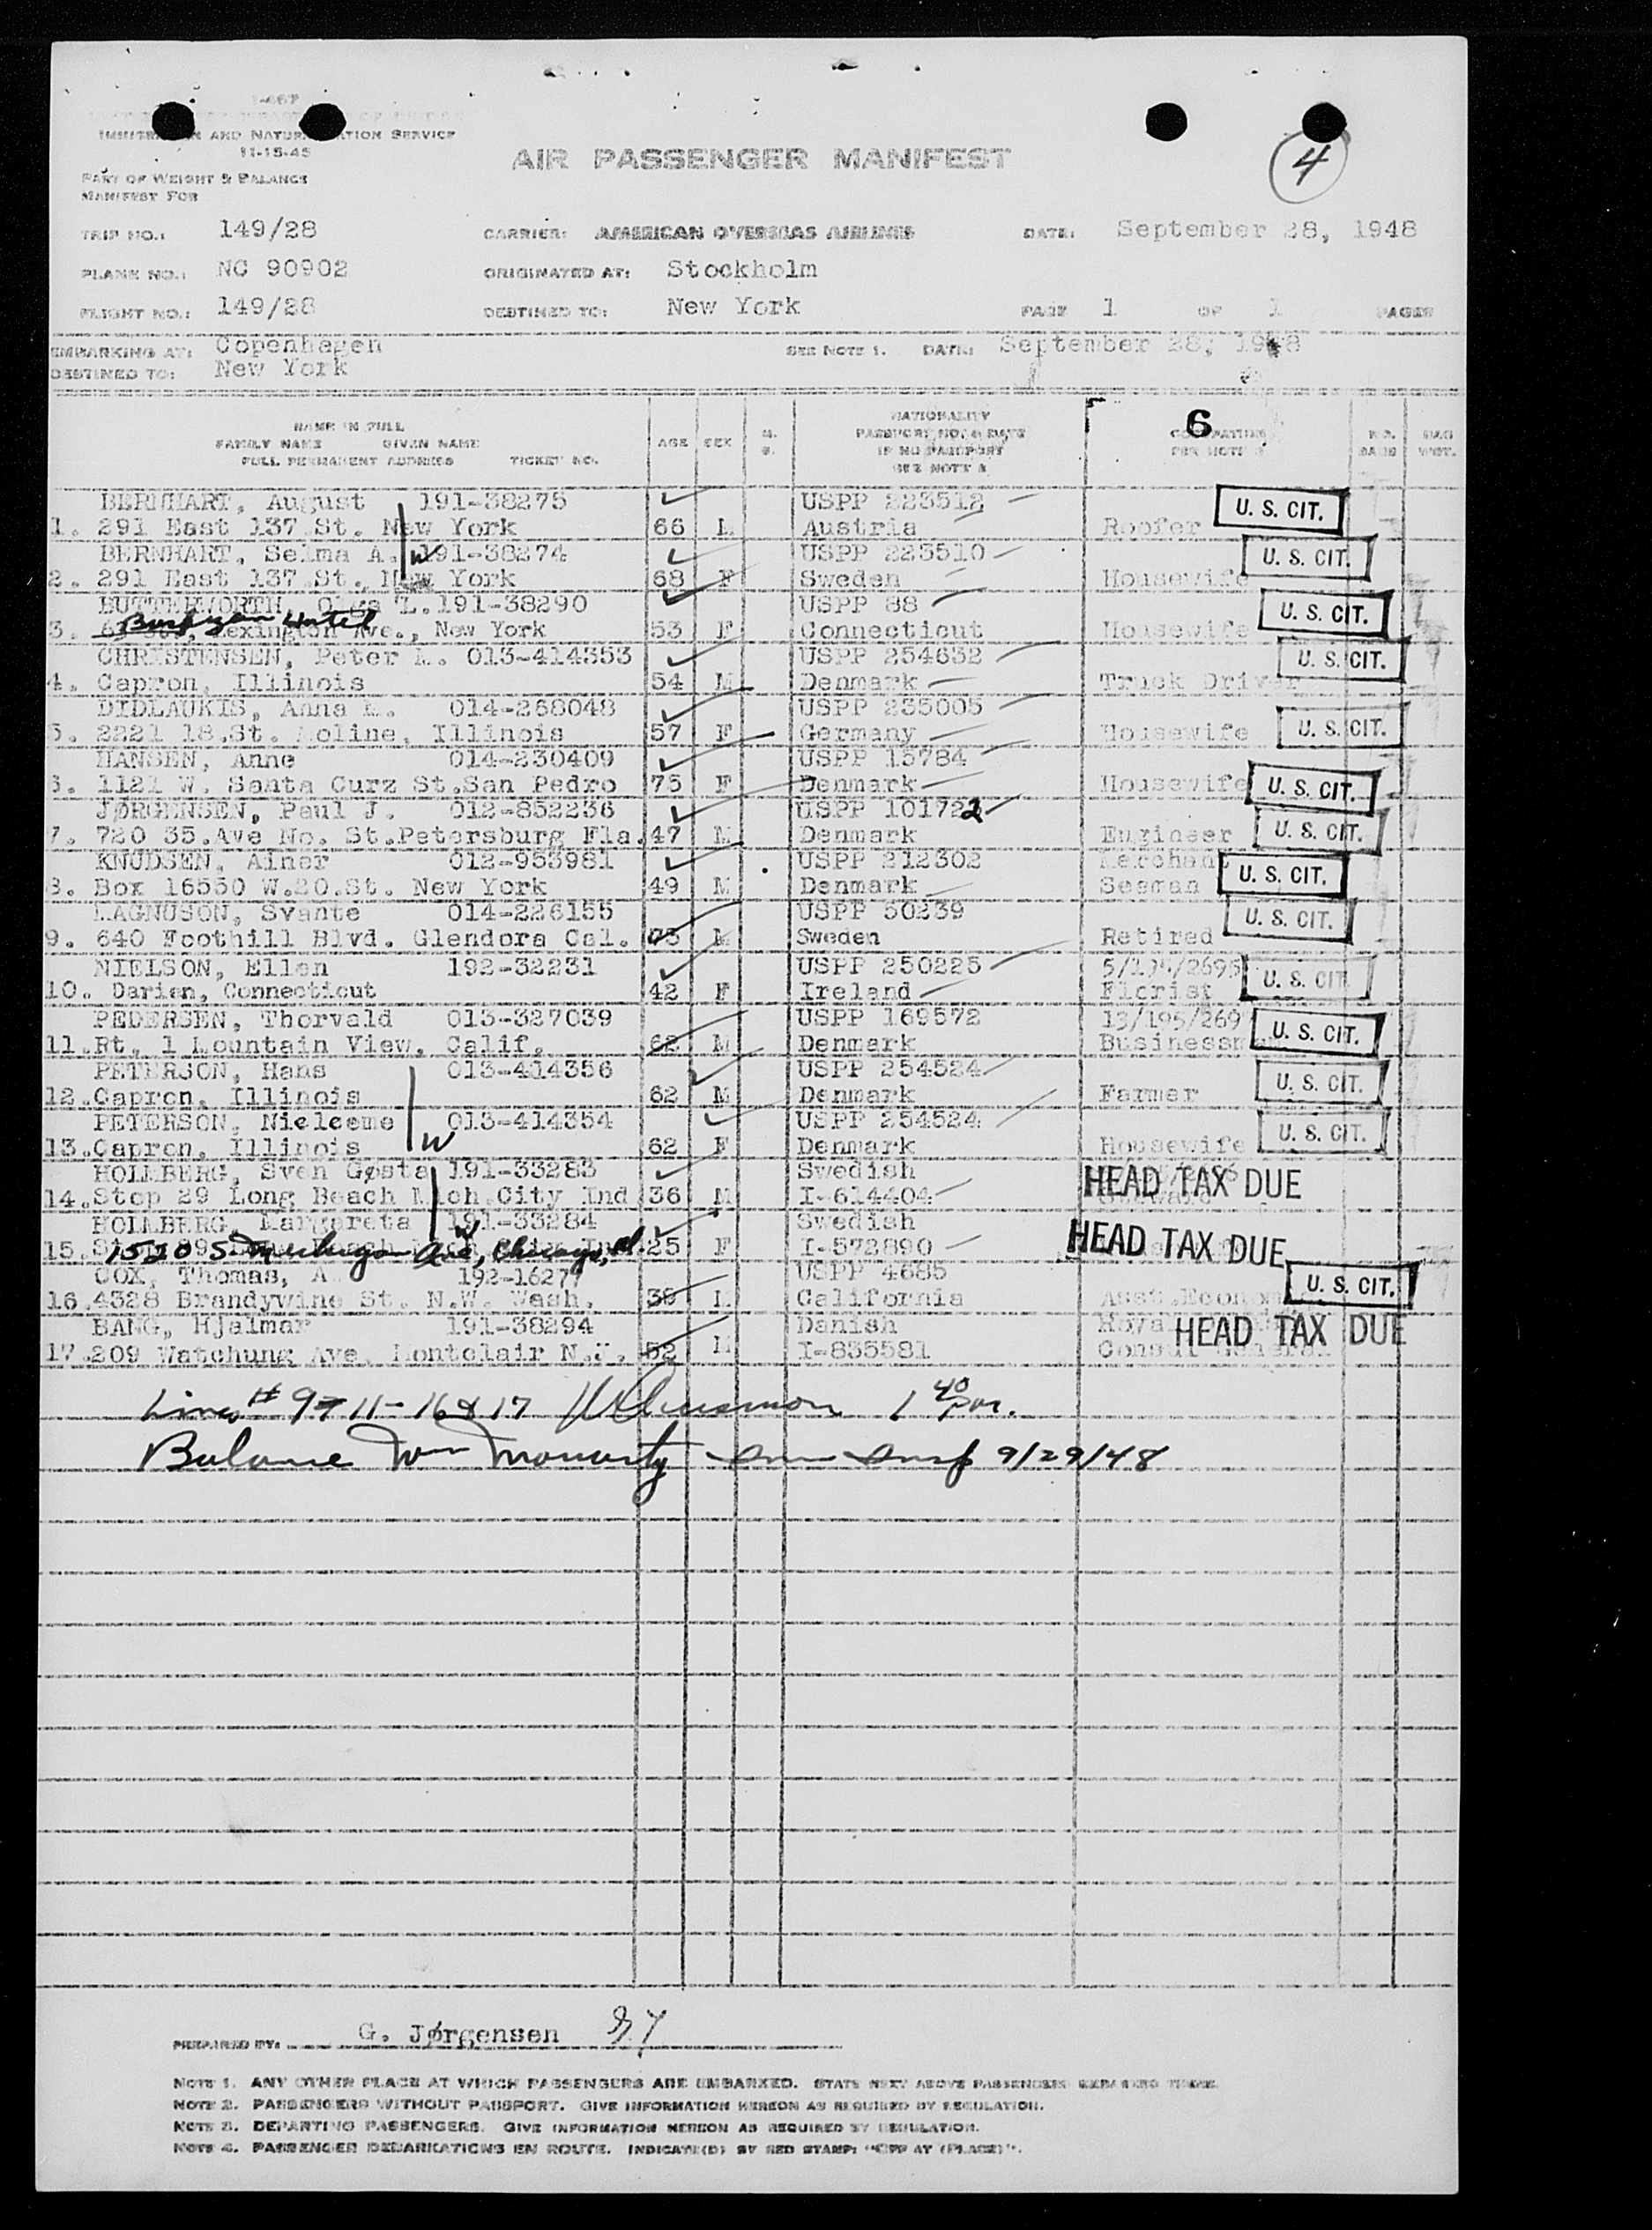 I-467
IMMIGRATION AND NATURALIZATION SERVICE
11-15-45
AIR PASSENGER MANIFEST
4
PART OF WEIGHT & BALANCE
MANIFEST FOR
TRIP NO.: 149/28 CARRIER: AMERICAN OVERSEAS AIRLINES DATE: September 28, 1948
PLANE NO.: NC 90902 ORIGINATED AT: Stockholm
FLIGHT NO.: 149/28 DESTINED TO: New York PAGE 1 OF 1 PAGES
EMBARKING AT: Copenhagen SEE NOTE 1. DATE: September 28, 1948
DESTINED TO: New York
NAME IN FULL NATIONALITY 6
FAMILY NAME GIVEN NAME AGE SEX M. S. PASSPORT NO. & DATE OCCUPATION NO. BAGS BAG WGT.
FULL PERMANENT ADDRESS TICKET NO. IF NO PASSPORT SEE NOTE 2
BERNHART, August 191-38275 USPP 223512 U. S. CIT.
1. 291 East 137 St. New York 66 M Austria Roofer
BERNHART, Selma A. W 191-38274 USPP 223510 U. S. CIT.
2. 291 East 137 St. New York 68 F Sweden Housewife
BUTTERWORTH, Olga L. 191-38290 USPP 88 U. S. CIT.
3. Lexington Ave., New York 53 F Connecticut Housewife
CHRISTENSEN, Peter M. 013-414353 USPP 254632 U. S. CIT.
4. Capron, Illinois 54 M Denmark Truck Driver
DIDLAUKIS, Anna M. 014-268048 USPP 235005
5. 2221 18.St. Moline, Illinois 57 F Germany Housewife U. S. CIT.
HANSEN, Anne 014-230409 USPP 15784
6. 1121 W. Santa Curz St.San Pedro 75 F Denmark Housewife U. S. CIT.
JØRGENSEN, Paul J. 012-852236 USPP 101722
7. 720 35.Ave No. St.Petersburg Fla. 47 M Denmark Engineer U. S. CIT.
KNUDSEN, Ainer 012-953981 USPP 212302 Merchant
8. Box 16550 W.20.St. New York 49 M Denmark Seaman U. S. CIT.
MAGNUSON, Svante 014-226155 USPP 50239 U. S. CIT.
9. 640 Foothill Blvd. Glendora Cal. 75 M Sweden Retired
NIELSON, Ellen 192-32231 USPP 250225 U. S. CIT.
10. Darien, Connecticut 42 F Ireland Florist
PEDERSEN, Thorvald 013-327039 USPP 169572 13/195/269
11. Rt. 1 Mountain View, Calif. 62 M Denmark U. S. CIT.
PETERSON, Hans 013-414356 USPP 254524 U. S. CIT.
12. Capron, Illinois 62 M Denmark Farmer
PETERSON, Nicleeme 013-414354 USPP 254524 U. S. CIT.
13. Capron, Illinois W 62 F Denmark Housewife
HOLMBERG, Sven Gøsta 191-33283 Swedish HEAD TAX DUE
14. Stop 29 Long Beach Mich.City Ind 36 M I-614404
HOLMBERG, Margareta 191-33284 W Swedish
15. 1520 S Michigan Ave, Chicago, Ill. 25 F I-572890 HEAD TAX DUE
COX, Thomas, A 192-16277 USPP 4685 U. S. CIT.
16. 4328 Brandywine St. N.W. Wash. 38 M California Asst.
BANG, Hjalmar 191-38294 Danish HEAD TAX DUE
17. 209 Watchung Ave. Montclair N.J. 52 M I-835581 Consul General
Lines # 9 11 - 16 & 17 1 40 pm.
Balance Wm Moriarty Imm Insp 9/29/48
PREPARED BY: G. Jørgensen
NOTE 1. ANY OTHER PLACE AT WHICH PASSENGERS ARE EMBARKED. STATE NEXT ABOVE PASSENGERS EMBARKED THERE.
NOTE 2. PASSENGERS WITHOUT PASSPORT. GIVE INFORMATION HEREON AS REQUIRED BY REGULATION.
NOTE 3. DEPARTING PASSENGERS. GIVE INFORMATION HEREON AS REQUIRED BY REGULATION.
NOTE 4. PASSENGER DEBARKATIONS EN ROUTE. INDICATE(D) BY RED STAMP: "OFF AT (PLACE)".